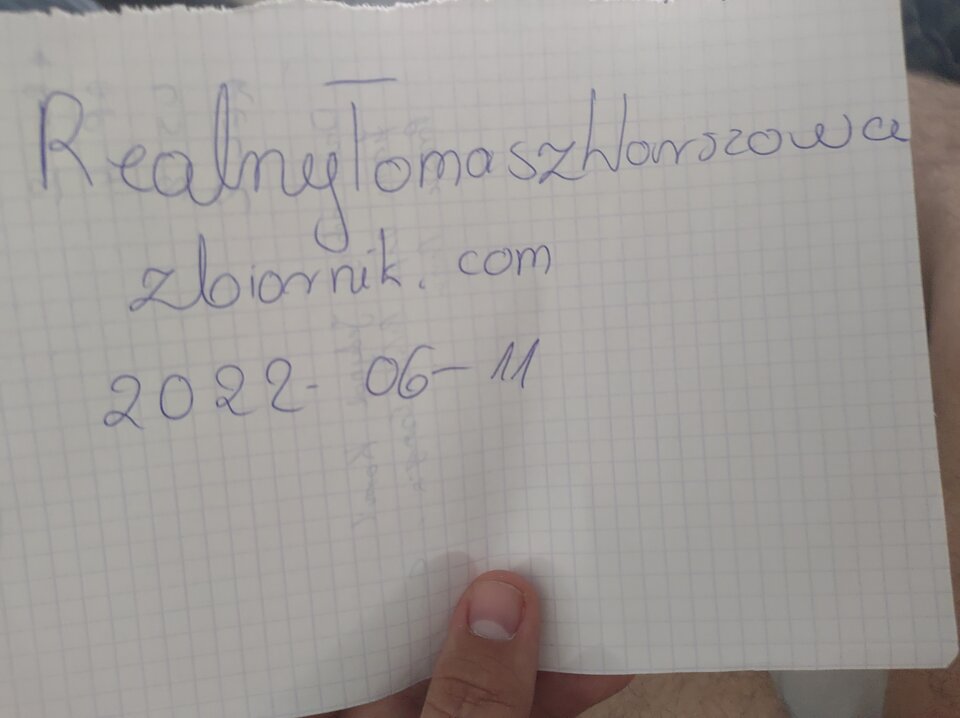 RealnyTomaszWarszawa
zbiornik.com
2022-06-11